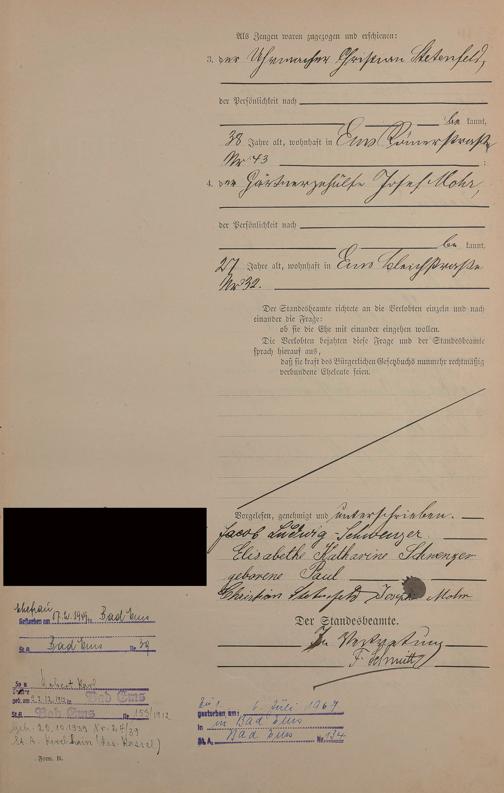 Als Zeugen waren zugezogen und erschienen:
3. der Uhrmacher Christian Stetenfeld,
der Persönlichkeit nach
be kannt,
38 Jahre alt, wohnhaft in Ems Römerstraße
Nr 43
4. der Gärtnergehülfe Josef Mohr,
der Persönlichkeit nach
be kannt,
27 Jahre alt, wohnhaft in Ems Bleichstraße
Nr 32.
Der Standesbeamte richtete an die Verlobten einzeln und nach
einander die Frage:
ob sie die Ehe mit einander eingehen wollen.
Die Verlobten bejahten diese Frage und der Standesbeamte
sprach hierauf aus,
daß sie kraft des Bürgerlichen Gesetzbuchs nunmehr rechtmäßig
verbundene Eheleute seien.
Vorgelesen, genehmigt und unterschrieben.
Jacob Ludwig Schwenzer
Elisabethe Katharine Schwenzer
geborene Paul
Christian Stetenfeld Joseph Mohr
Der Standesbeamte.
In Vertretung
F. Schmitt
Ehefrau
Gestorben am 17.2.1949 in Bad Ems
St.A. Bad Ems Nr. 39
Robert Karl
geb. am 22.12.1912 in Bad Ems
St.A. Bad Ems Nr. 155/1912
Geh. 20.10.1939 Nr. 24/39
St. A. Kirchhain (Bez. Kassel)
Form. B.
gestorben am: 6. Juli 1967
in Bad Ems
St. A. Bad Ems Nr. 134